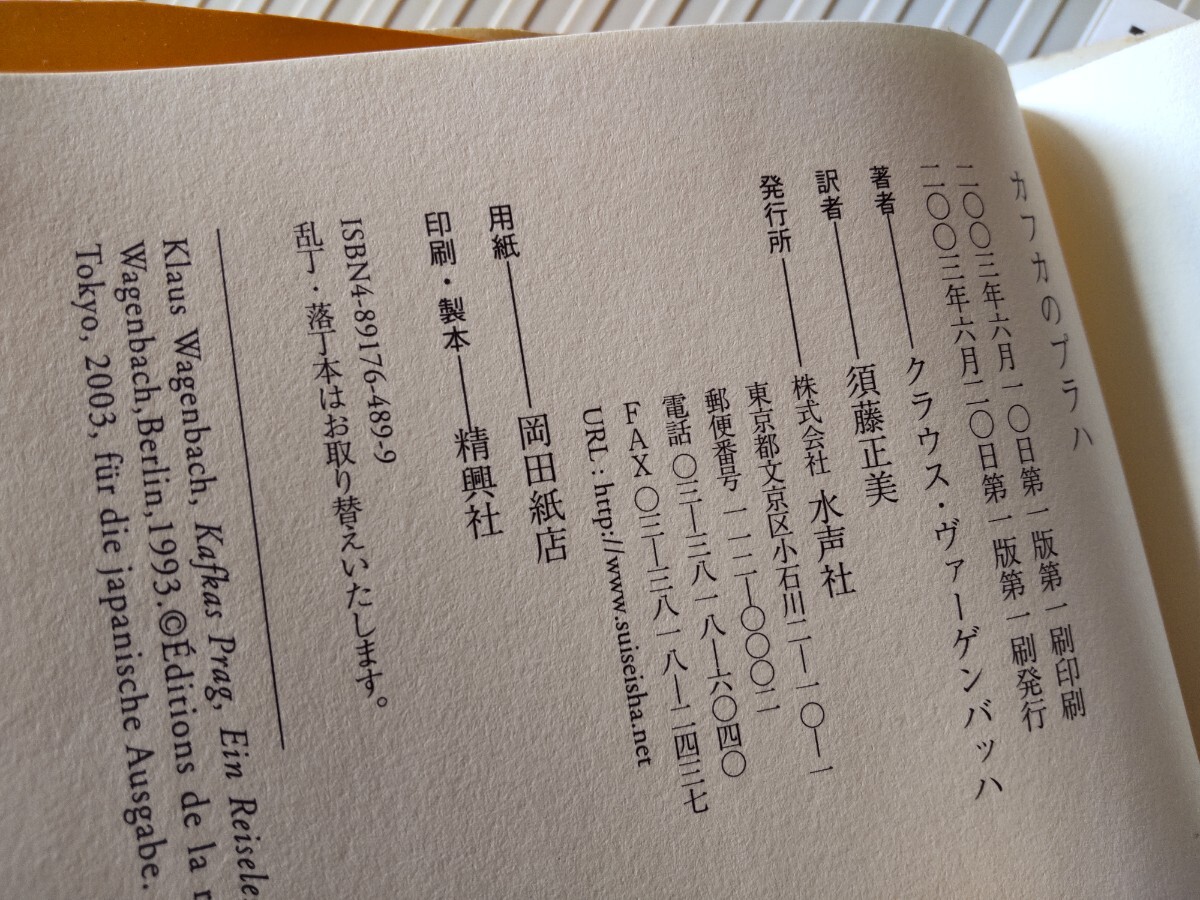 カフカのプラハ
二〇〇三年六月一〇日第一版第一刷印刷
二〇〇三年六月二〇日第一版第一刷発行
著者――クラウス・ヴァーゲンバッハ
訳者――須藤正美
発行所――株式会社 水声社
東京都文京区小石川二―一〇―一
郵便番号 一一二―〇〇〇二
電話 〇三―三八一八―六〇四〇
FAX 〇三―三八一八―二四三七
URL : http://www.suiseisha.net
用紙――岡田紙店
印刷・製本――精興社
ISBN4-89176-489-9
乱丁・落丁本はお取り替えいたします。
Klaus Wagenbach, Kafkas Prag, Ein
Wagenbach,Berlin,1993.©Éditions de la
Tokyo, 2003, für die japanische Ausgabe.